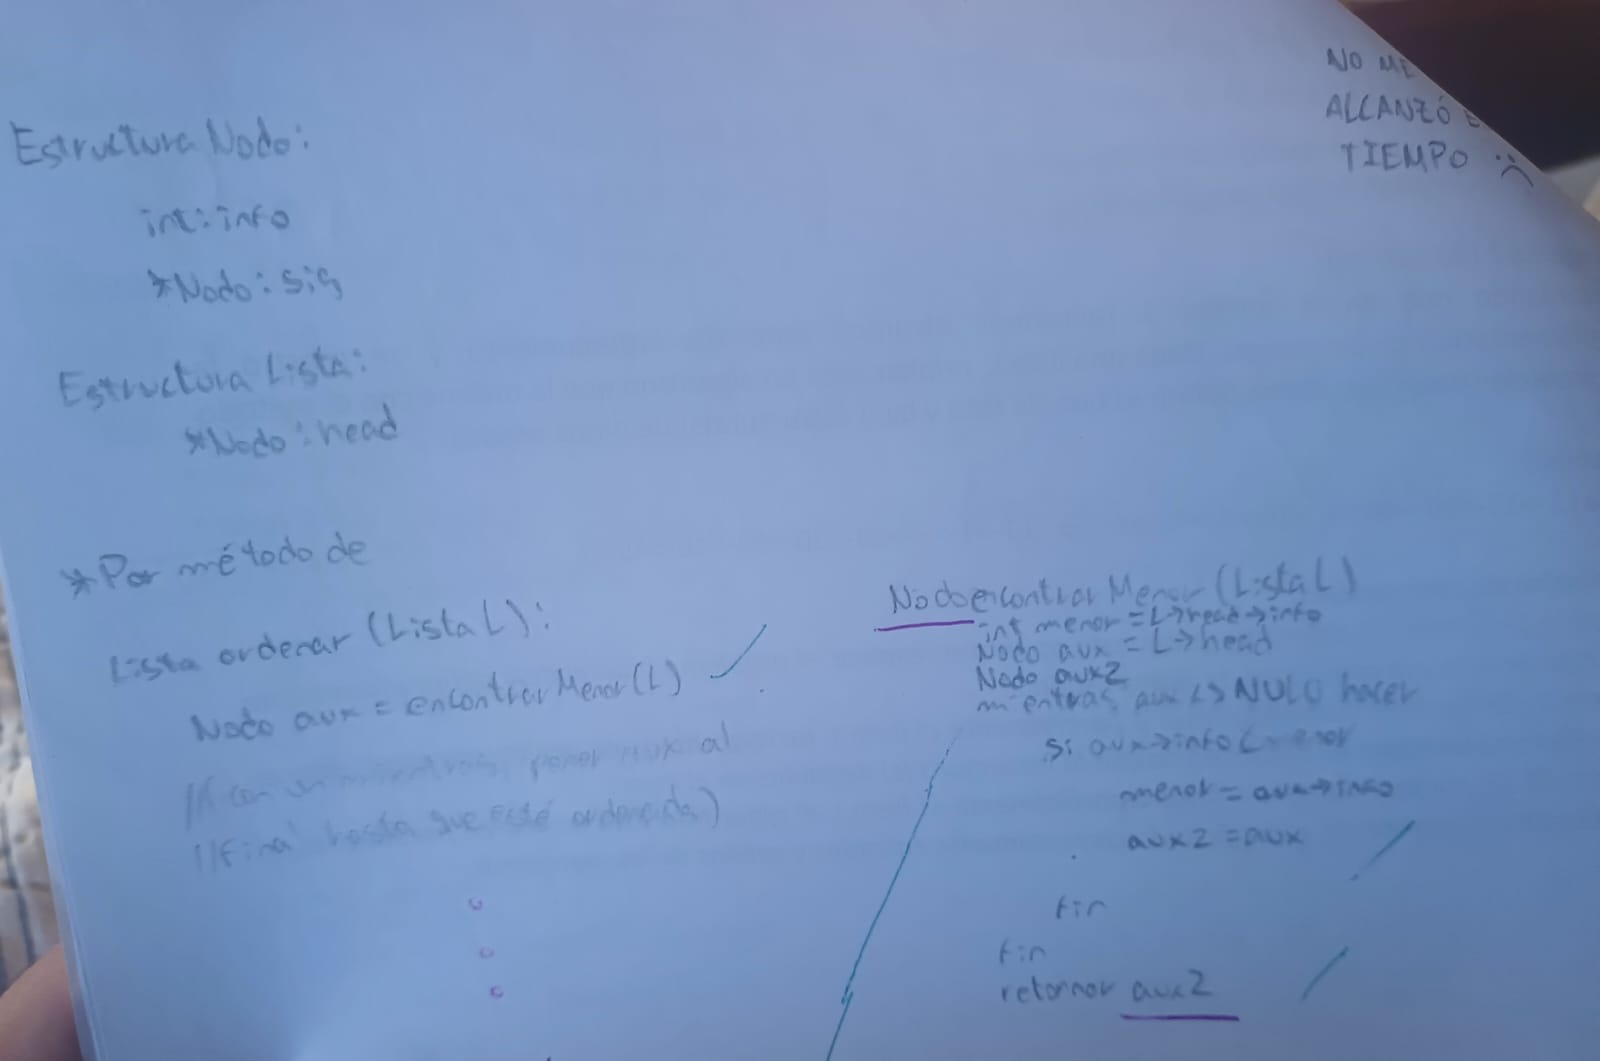 NO ME
ALCANZÓ E
TIEMPO :(
Estructura Nodo:
int: info
*Nodo: sig
Estructura Lista:
*Nodo: head
*Por método de
Lista ordenar (Lista L):
Nodo aux = encontrarMenor(L)
//( con un mientras, poner aux al
//final hasta que esté ordenada)
Nodo encontrarMenor (Lista L)
int menor = L→head→info
Nodo aux = L→head
Nodo aux2
mientras aux <> NULO hacer
si aux→info < menor
menor = aux→info
aux2 = aux
fin
fin
retornar aux2